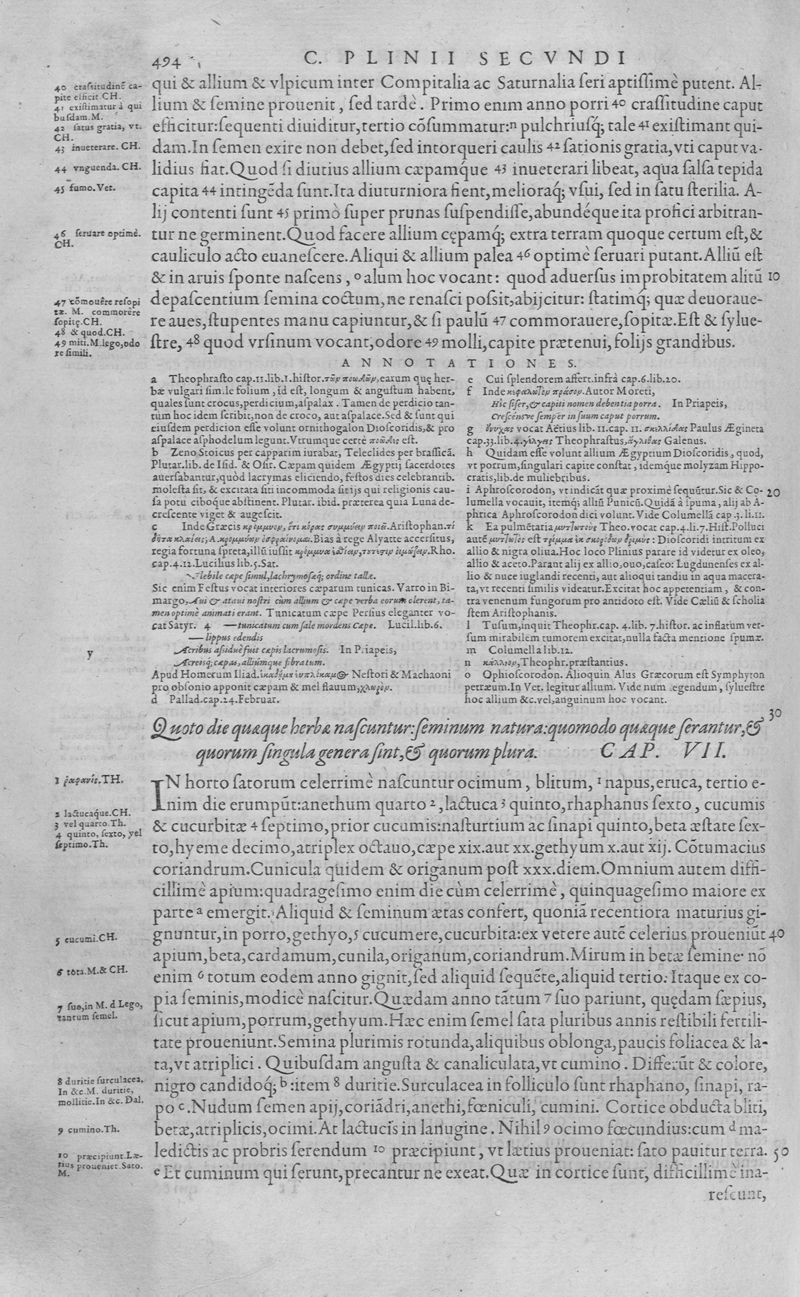 494
C. PLINII SECVNDI
qui & allium & vlpicum inter Compitalia ac Saturnalia seri aptissimè putent. Al-
lium & semine prouenit, sed tardè. Primo enim anno porri 40 crassitudine caput
efficitur:sequenti diuiditur,tertio cōsummatur:n pulchriusq; tale 41 existimant qui-
dam.In semen exire non debet,sed intorqueri caulis 42 sationis gratia,vti caput va-
lidius fiat.Quod si diutius allium cæpamq́ue 43 inueterari libeat, aqua salsa tepida
capita 44 intingēda sunt.Ita diuturniora fient,melioraq; vsui, sed in satu sterilia. A-
lij contenti sunt 45 primò super prunas suspendisse,abundéque ita profici arbitran-
tur ne germinent.Quod facere allium cępamq; extra terram quoque certum est,&
cauliculo acto euanescere.Aliqui & allium palea 46 optimè seruari putant.Alliū est
& in aruis sponte nascens, o alum hoc vocant: quod aduersus improbitatem alitū 10
depascentium semina coctum,ne renasci possit,abijcitur: statimq; quæ deuoraue-
re aues,stupentes manu capiuntur,& si paulū 47 commorauere,sopitæ.Est & sylue-
stre, 48 quod vrsinum vocant,odore 49 molli,capite prætenui,folijs grandibus.
40 crassitudinē ca-
pite efficit.CH.
41 existimatur à qui
busdam.M.
42 satus gratia, vt.
CH.
43 inueterare.CH.
44 vnguenda.CH.
45 fumo.Vet.
46 seruare optimè.
CH.
47 cōmouēre resopi
tæ. M. commorere
sopitę.CH.
48 & quod.CH.
49 miti.M.lego,odo
re simili.
ANNOTATIONES.
a Theophrasto cap.11.lib.1.histor. earum quę her-
bæ vulgari simile folium, id est, longum & angustum habent,
quales sunt crocus,perdicium,aspalax. Tamen de perdicio tan-
tùm hoc idem scribit,non de croco, aut aspalace.Sed & sunt qui
eiusdem perdicion esse volunt ornithogalon Dioscoridis,& pro
aspalace asphodelum legunt.Vtrumque certè est.
b Zeno Stoicus per capparim iurabat, Teleclides per brassicā.
Plutar.lib.de Isid. & Osir. Cæpam quidem Ægyptij sacerdotes
auersabantur,quòd lacrymas eliciendo, festos dies celebrantib.
molesta sit, & excitata siti incommoda sitijs qui religionis cau-
sa potu ciboque abstinent. Plutar. ibid. præterea quia Luna de-
crescente viget & augescit.
c Inde Græcis Aristophan.
Bias à rege Alyatte accersitus,
regia fortuna spreta,illū iussit Rho.
cap.4.12.Lucilius lib.5.Sat.
Flebile cæpe simul,lachrymosaq; ordine tallæ.
Sic enim Festus vocat interiores cæparum tunicas. Varro in Bi-
margo,Aui & ataui nostri cùm allium & cæpe verba eorum olerent, ta-
men optimè animati erant. Tunicatum cæpe Persius eleganter vo-
cat Satyr. 4 —tunicatum cum sale mordens Cæpe. Lucil.lib.6.
— lippus edendis
Acribus assiduè fuit cæpis lacrumosis. In Priapeis,
Acresq; cæpas, alliúmque fibratum.
Apud Homerum Iliad. Nestori & Machaoni
pro obsonio apponit cæpam & mel flauum,
d Pallad.cap.24.Februar.
e Cui splendorem affert.infrà cap.6.lib.20.
f Inde Autor Moreti,
Hîc siser,& capitis nomen debentia porra. In Priapeis,
Crescensve semper in suum caput porrum.
g vocat Aëtius lib. 11.cap. 11. Paulus Ægineta
cap.33.lib.4. Theophrastus, Galenus.
h Quidam esse volunt allium Ægyptium Dioscoridis, quod,
vt porrum,singulari capite constat, idemque molyzam Hippo-
cratis,lib.de muliebribus.
i Aphroscorodon, vt indicāt quæ proximè sequūtur.Sic & Co- 20
lumella vocauit, itemq; alliū Punicū.Quidā à spuma, alij ab A-
phrica Aphroscorodon dici volunt. Vide Columellā cap.3.li.11.
k Ea pulmētaria Theo.vocat cap.4.li.7.Hist.Polluci
autē est : Dioscoridi intritum ex
allio & nigra oliua.Hoc loco Plinius parare id videtur ex oleo,
allio & aceto.Parant alij ex allio,ouo,caseo: Lugdunenses ex al-
lio & nuce iuglandi recenti, aut alioqui tandiu in aqua macera-
ta,vt recenti similis videatur.Excitat hoc appetentiam, & con-
tra venenum fungorum pro antidoto est. Vide Cæliū & scholia
stem Aristophanis.
l Tusum,inquit Theophr.cap. 4.lib. 7.histor.ac inflatum ver-
sum mirabilem tumorem excitat,nulla facta mentione spumæ.
m Columella lib.12.
n Theophr.præstantius.
o Ophioscorodon. Alioquin Alus Græcorum est Symphyton
petræum.In Vet. legitur alitum. Vide num legendum, syluestre
hoc allium &c.vel,anguinum hoc vocant.
y
30
Quoto die quæque herba nascuntur:seminum natura:quomodo quæque serantur,&
quorum singula genera sint,& quorum plura. CAP. VII.
IN horto satorum celerrimè nascuntur ocimum, blitum, 1 napus,eruca, tertio e-
nim die erumpūt:anethum quarto 2,lactuca 3 quinto,rhaphanus sexto, cucumis
& cucurbitæ 4 septimo,prior cucumis:nasturtium ac sinapi quinto,beta æstate sex-
to,hyeme decimo,atriplex octauo,cæpe xix.aut xx.gethyum x.aut xij. Cōtumacius
coriandrum.Cunicula quidem & origanum post xxx.diem.Omnium autem diffi-
cillimè apium:quadragesimo enim die cùm celerrimè, quinquagesimo maiore ex
parte a emergit. Aliquid & seminum ætas confert, quoniā recentiora maturius gi-
gnuntur,in porro,gethyo,5 cucumere,cucurbita:ex vetere autē celerius proueniūt 40
apium,beta,cardamum,cunila,origanum,coriandrum.Mirum in betæ semine: nō
enim 6 totum eodem anno gignit,sed aliquid sequēte,aliquid tertio. Itaque ex co-
pia seminis,modicè nascitur.Quædam anno tātum 7 suo pariunt, quędam sæpius,
sicut apium,porrum,gethyum.Hæc enim semel sata pluribus annis restibili fertili-
tate proueniunt.Semina plurimis rotunda,aliquibus oblonga,paucis foliacea & la-
ta,vt atriplici. Quibusdam angusta & canaliculata,vt cumino. Differūt & colore,
nigro candidoq; b:item 8 duritie.Surculacea in folliculo sunt rhaphano, sinapi, ra-
po c.Nudum semen apij,coriādri,anethi,fœniculi, cumini. Cortice obducta bliti,
betæ,atriplicis,ocimi.At lactucis in lanugine. Nihil 9 ocimo fœcundius:cum d ma-
ledictis ac probris serendum 10 præcipiunt, vt lætius proueniat: sato pauitur terra. 50
e Et cuminum qui serunt,precantur ne exeat.Quæ in cortice sunt, difficillimè ina-
rescunt,
1 ῥαφανίς.TH.
2 lactucaque.CH.
3 vel quarto.Th.
4 quinto, sexto, vel
septimo.Th.
5 cucumi.CH.
6 tōta.M.& CH.
7 suo,in M. d Lego,
tantum semel.
8 duritie surculacea.
In &c.M. duritie,
mollitie.In &c. Dal.
9 cumino.Th.
10 præcipiunt.Læ-
tius proueniet.Sato.
M.